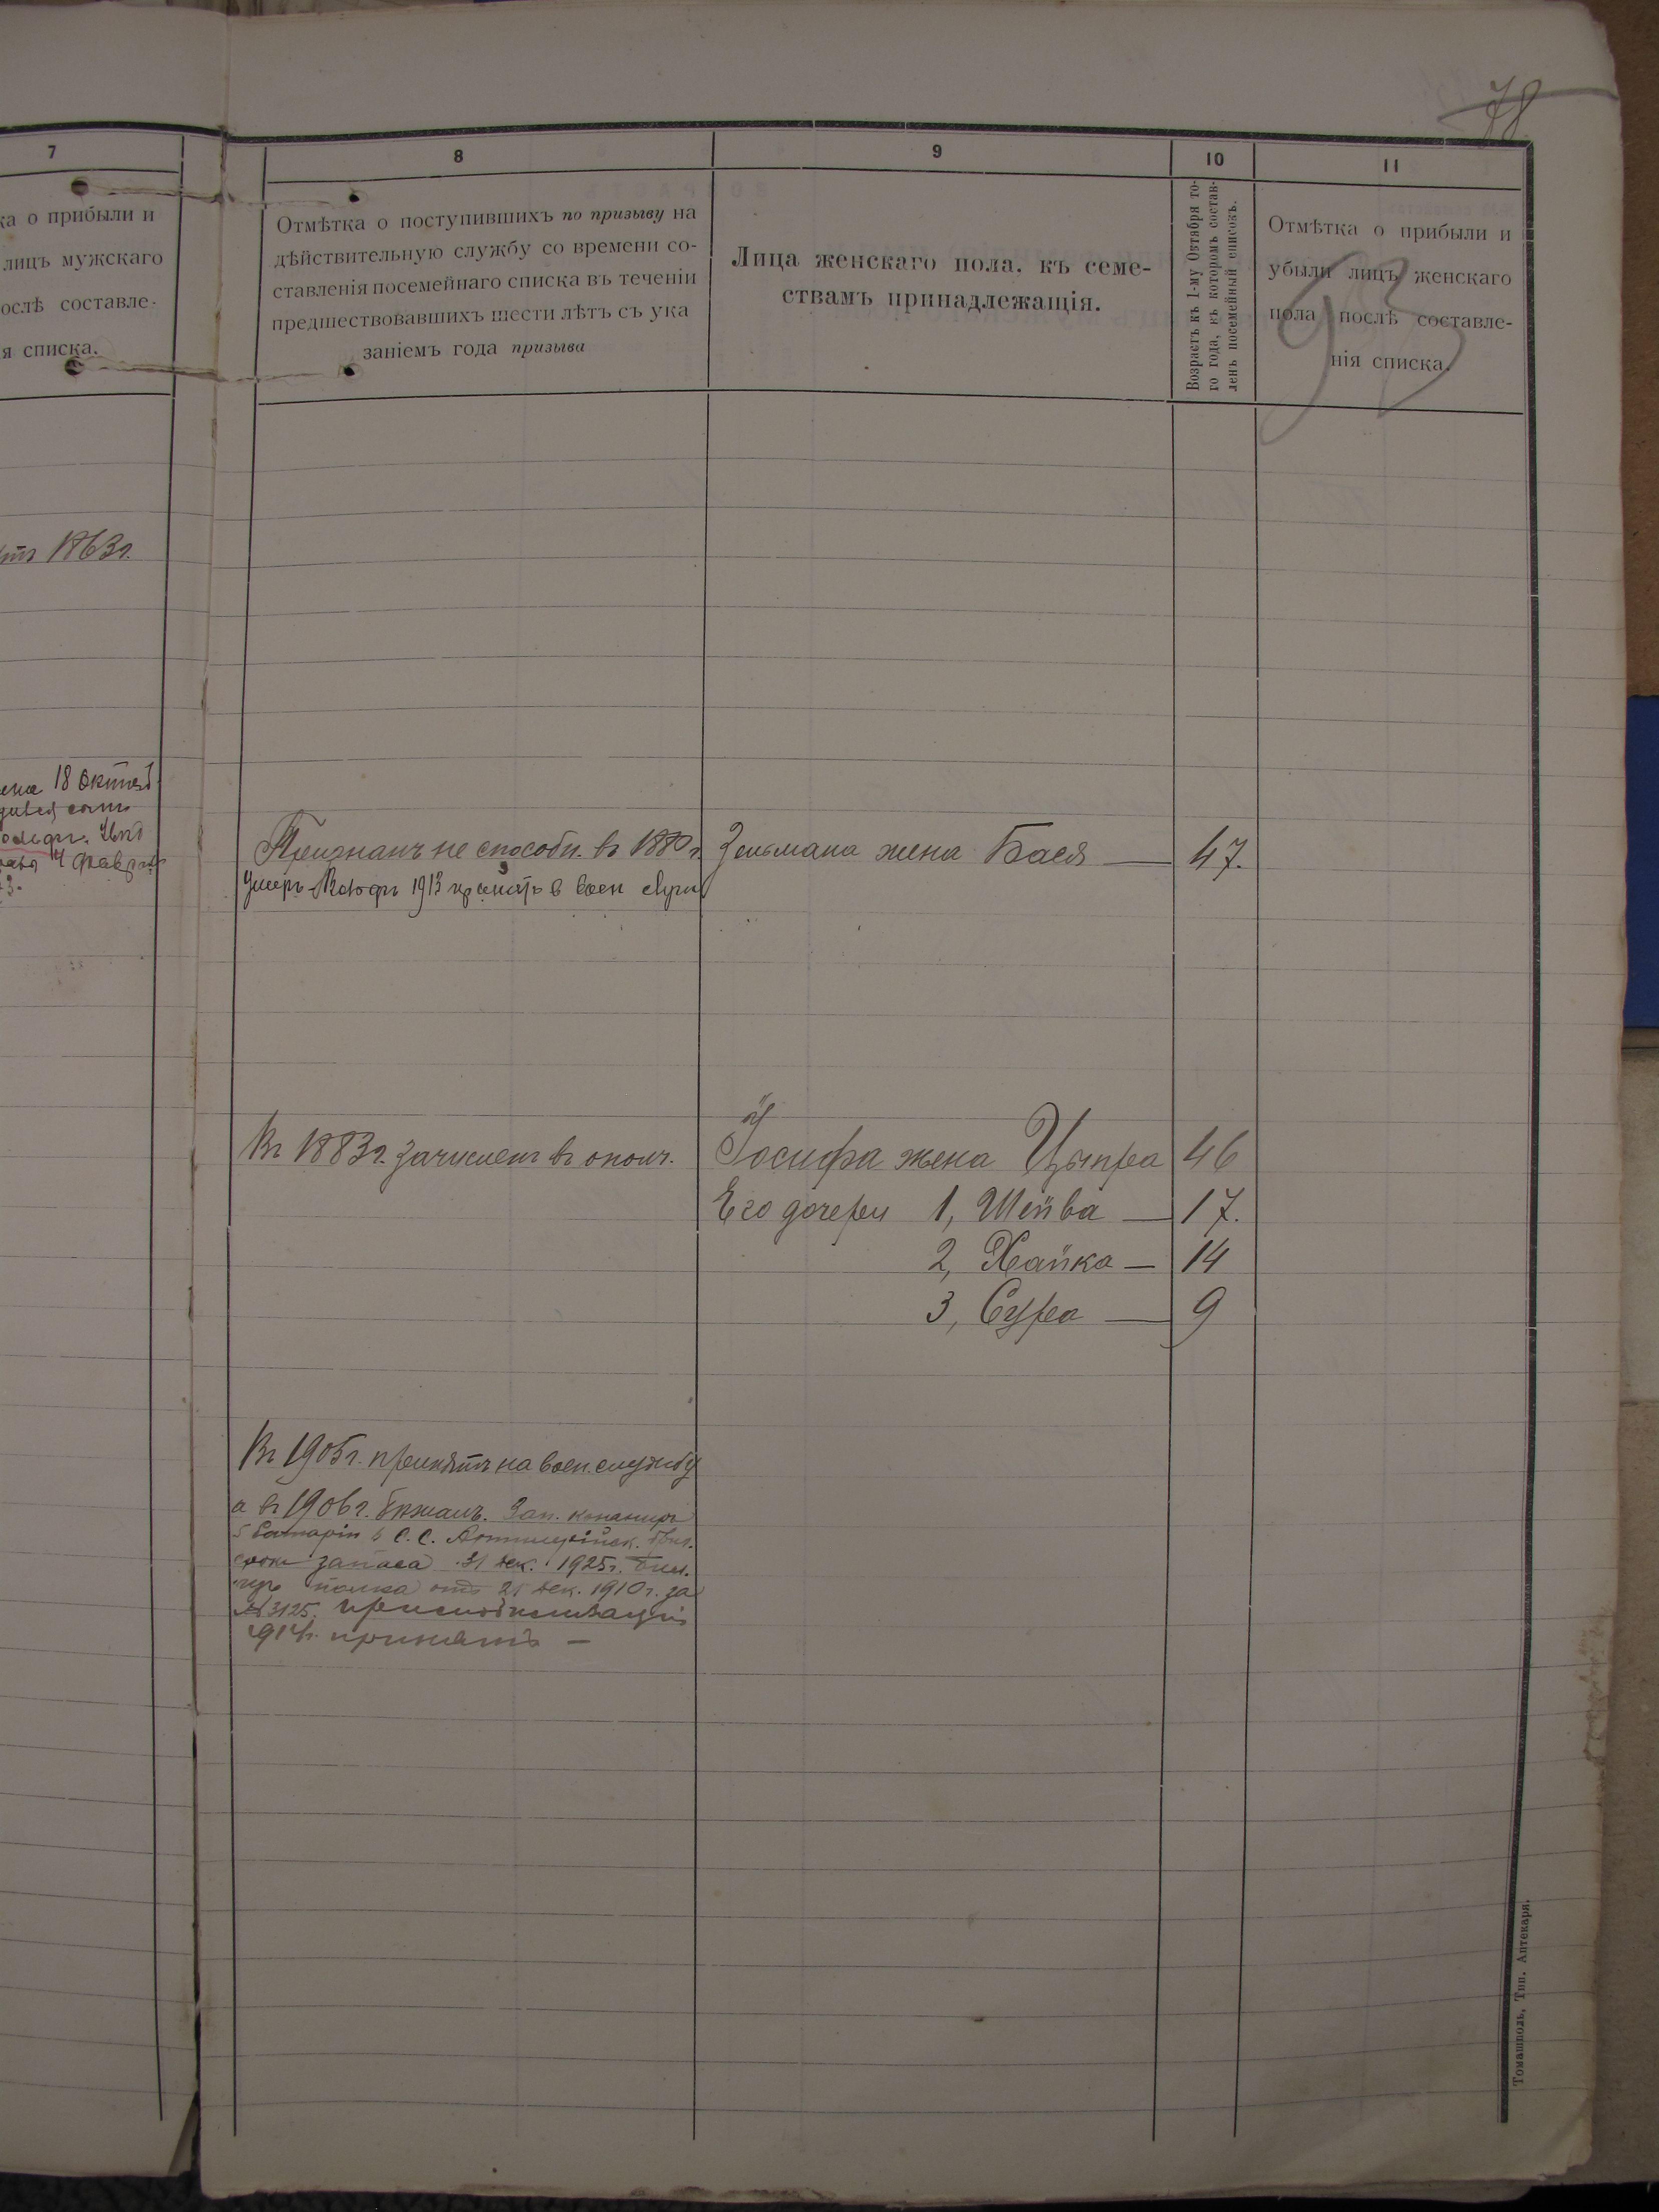 78
7
ка о прибыли и
лицъ мужскаго
ослѣ составле-
я списка.
1863г.
18 Октяб
8
Отмѣтка о поступившихъ по призыву на
дѣйствительную службу со времени со-
ставленія посемейнаго списка въ теченіи
предшествовавшихъ шести лѣтъ съ ука
заніемъ года призыва
9
Лица женскаго пола, къ семе-
ствамъ принадлежащія.
10
Возрастъ къ 1-му Октября то-
го года, къ которомъ состав-
ленъ посемейный списокъ.
11
Отмѣтка о прибыли и
убыли лицъ женскаго
пола послѣ составле-
нія списка.
93
Признанъ не способн. въ 1880г.
1913 в воен
Зельмана жена Бася — 47.
Въ 1883г. зачисленъ въ ополч.
Іосифа жена Цыпра 46
Его дочери 1, Шейва — 17.
2, Хайка — 14
3, Сура — 9
Въ 1905г. принятъ на воен. службу
а въ 1906г. бѣжалъ. Зап.
5 батаріи С. С. Артилерійск. бриг.
срокъ запаса 31 дек. 1925г. бил.
полка отъ 21 дек. 1910г. за
№ 3125.
1914г. принятъ —
Томашполь, Тип. Аптекаря.